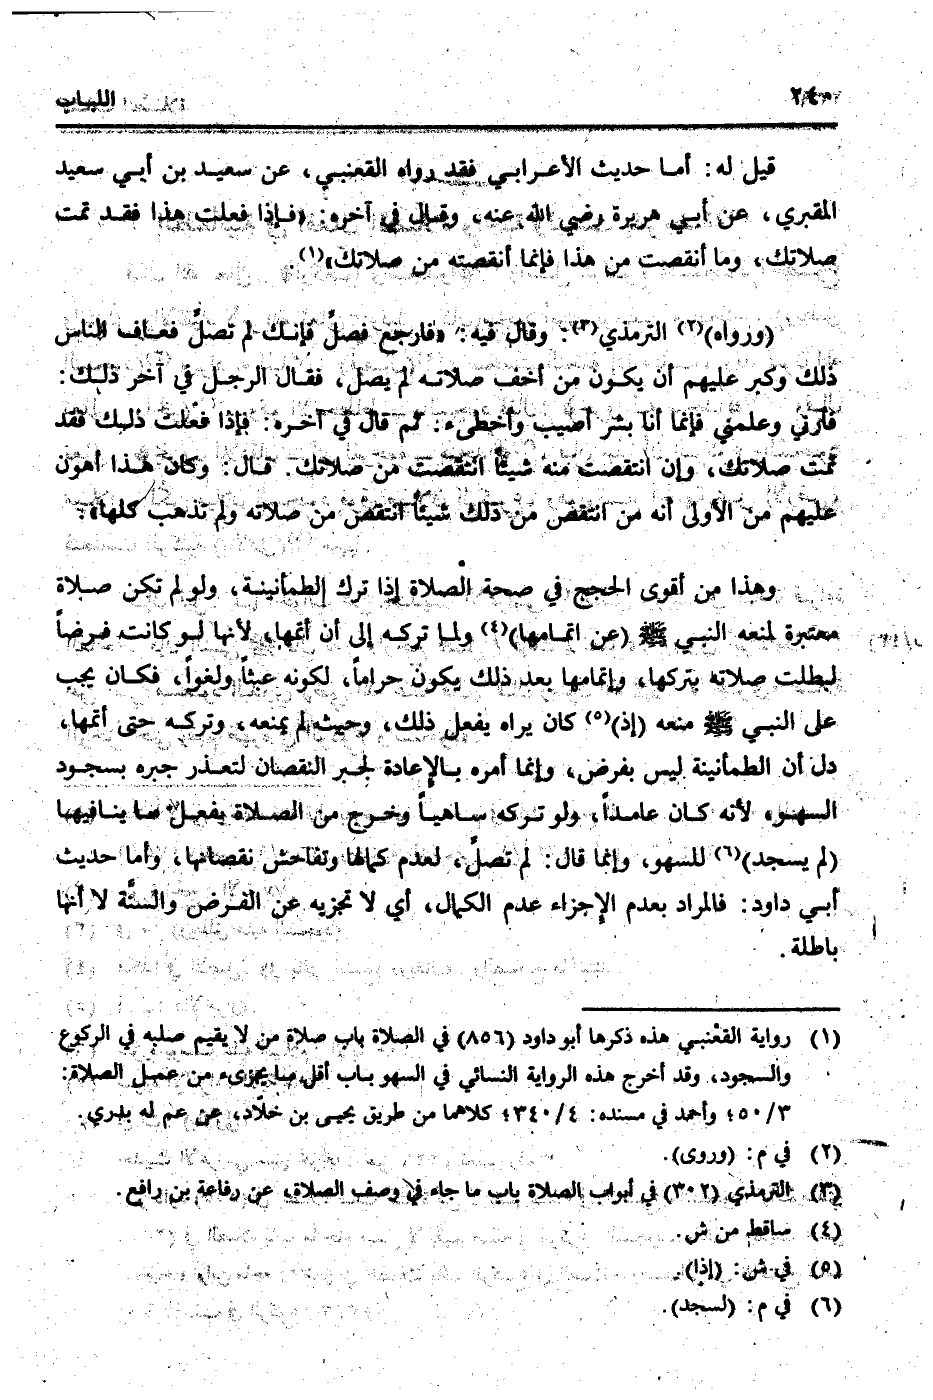 ٢٤٠ اللباب
قيل له: أما حديث الأعرابي فقد رواه القعنبي، عن سعيد بن أبي سعيد
المقبري، عن أبي هريرة رضي الله عنه، وقال في آخره: «فإذا فعلت هذا فقد تمت
صلاتك، وما أنقصت من هذا فإنما أنقصته من صلاتك»(١).
(ورواه)(٢) الترمذي(٣): وقال فيه: «فارجع فصلِّ فإنك لم تصلِّ فعاف الناس
ذلك وكبر عليهم أن يكون من أخف صلاته لم يصل، فقال الرجل في آخر ذلك:
فأرني وعلمني فإنما أنا بشر أصيب وأخطىء: ثم قال في آخره: فإذا فعلت ذلك فقد
تمت صلاتك، وإن انتقصت منه شيئاً انتقصت من صلاتك. قال: وكان هذا أهون
عليهم من الأولى أنه من انتقص من ذلك شيئاً انتقص من صلاته ولم تذهب كلها».
وهذا من أقوى الحجج في صحة الصلاة إذا ترك الطمأنينة، ولو لم تكن صلاة
معتبرة لمنعه النبي ﷺ (عن اتمامها)(٤) ولما تركه إلى أن أتمها، لأنها لو كانت فرضاً
لبطلت صلاته بتركها، وإتمامها بعد ذلك يكون حراماً، لكونه عبثاً ولغواً، فكان يجب
على النبي ﷺ منعه (إذ)(٥) كان يراه يفعل ذلك، وحيث لم يمنعه، وتركه حتى أتمها،
دل أن الطمأنينة ليس بفرض، وإنما أمره بالإعادة لجبر النقصان لتعذر جبره بسجود
السهو، لأنه كان عامداً، ولو تركه ساهياً وخرج من الصلاة بفعل ما ينافيها
(لم يسجد)(٦) للسهو، وإنما قال: لم تصلِّ، لعدم كمالها وتفاحش نقصانها، وأما حديث
أبي داود: فالمراد بعدم الإجزاء عدم الكمال، أي لا تجزيه عن الفرض والسنَّة لا أنها
باطلة.
(١) رواية القعْنبي هذه ذكرها أبو داود (٨٥٦) في الصلاة باب صلاة من لا يقيم صلبه في الركوع
والسجود، وقد أخرج هذه الرواية النسائي في السهو باب أقل ما يجزىء من عمل الصلاة:
٥٠/٣؛ وأحمد في مسنده: ٣٤٠/٤؛ كلاهما من طريق يحيى بن خلّاد، عن عم له بدري.
(٢) في م: (وروى).
(٣) الترمذي (٣٠٢) في أبواب الصلاة باب ما جاء في وصف الصلاة، عن رفاعة بن رافع.
(٤) ساقط من ش.
(٥) في ش: (إذا).
(٦) في م: (لسجد).